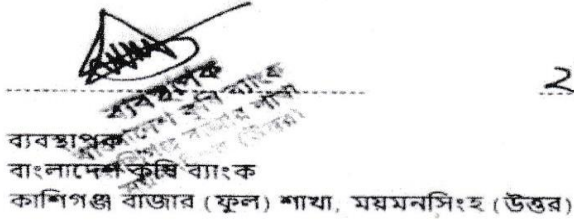 ২
ব্যবস্থাপক
বাংলাদেশ কৃষি ব্যাংক
ব্যবস্থাপক
বাংলাদেশ কৃষি ব্যাংক
কাশিগঞ্জ বাজার (ফুল) শাখা, ময়মনসিংহ (উত্তর)